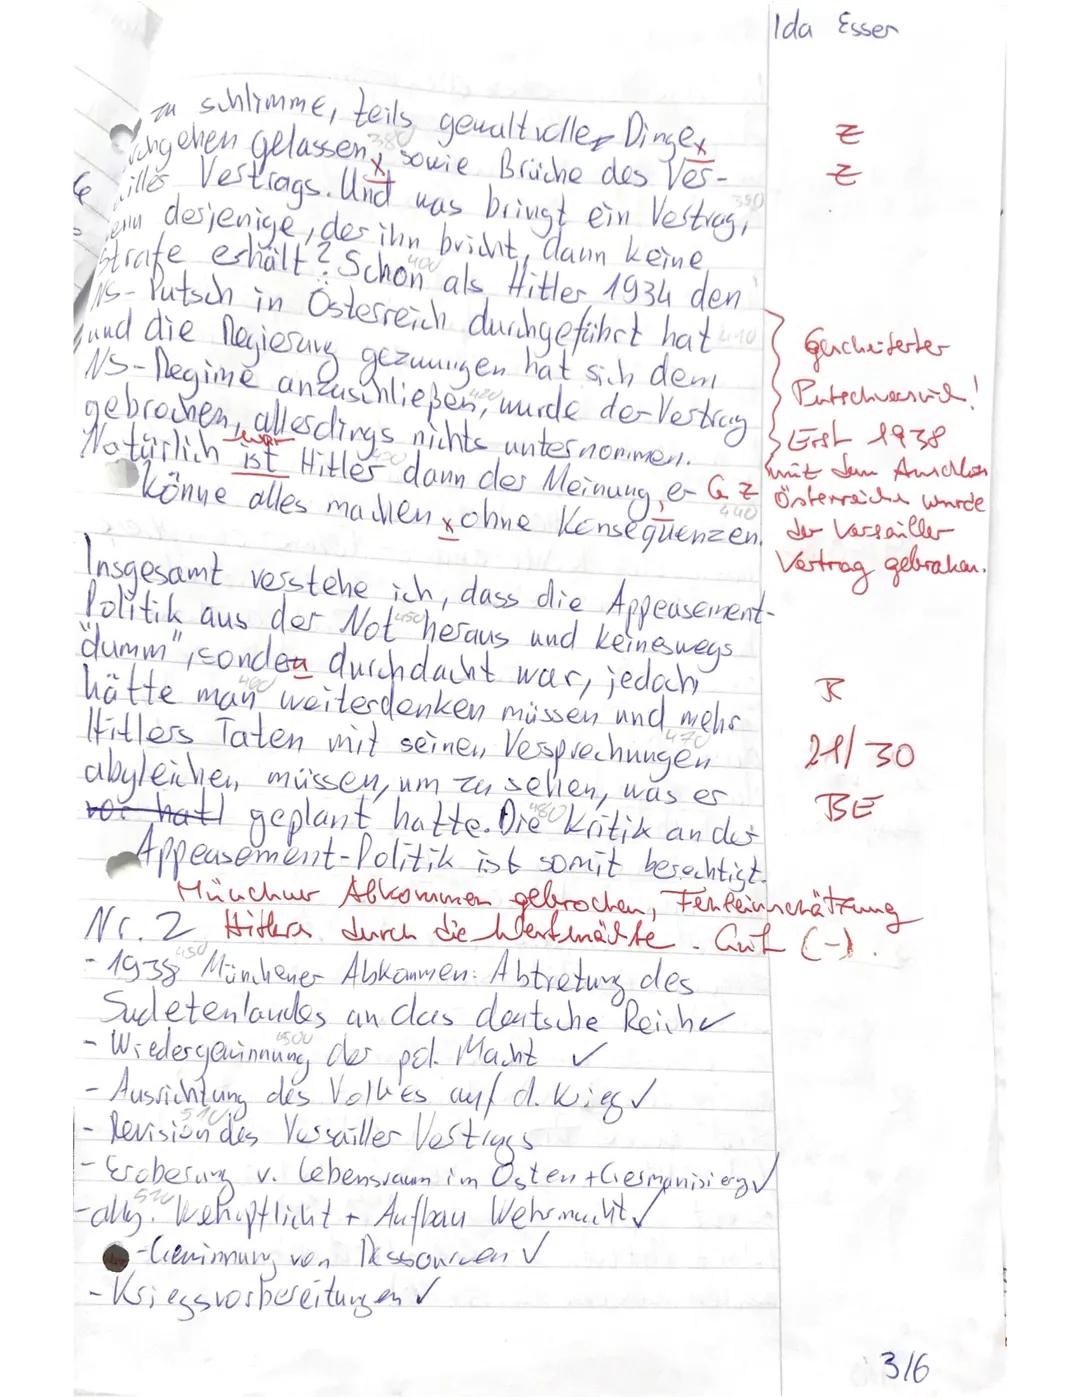 Ida Esser
zu schlimme, teils gewaltvolle Dinge
gehen gelassen, sowie Brüche des Ver-
illes Vertrags. Und was bringt ein Vertrag,
wenn desjenige, der ihn bricht, dann keine
Strafe erhält? Schon als Hitler 1934 den
NS-Putsch in Österreich durchgeführt hat
und die Regierung gezwungen hat sich dem
NS-Regime anzuschließen, wurde der Vertrag
gebrochen, allerdings nichts unternommen.
war
Natürlich ist Hitler dann der Meinung, er
könne alles machen ohne Konsequenzen.
Z
Z
Gescheiterter
Putschversuch!
Erst 1938
mit dem Anschluss
Österreichs wurde
der Versailler
Vertrag gebrochen.
G Z
Insgesamt verstehe ich, dass die Appeasement-
Politik aus der Not heraus und keineswegs
"dumm", sondern durchdacht war, jedoch
hätte man weiterdenken müssen und mehr
Hitlers Taten mit seinen Versprechungen
abgleichen müssen, um zu sehen, was er
vor hatt geplant hatte. Die Kritik an der
Appeasement-Politik ist somit berechtigt.
R
21/30
BE
Münchner Abkommen gebrochen, Fehleinschätzung
Hitlers durch die Westmächte. Gut (-).
Nr. 2
- 1938 Münchener Abkommen: Abtretung des
Sudetenlandes an das deutsche Reich ✓
- Wiedergewinnung der pol. Macht ✓
- Ausrichtung des Volkes auf d. Krieg ✓
- Revision des Versailler Vertrags
- Eroberung v. Lebensraum im Osten + Germanisierg ✓
- allg. Wehrpflicht + Aufbau Wehrmacht ✓
- Gewinnung von Ressourcen ✓
- Kriegsvorbereitungen ✓
3/6